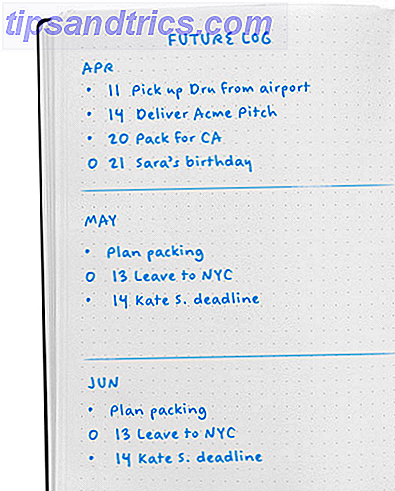 tipsandtrics.com
FUTURE LOG
APR
• 11 Pick up Dru from airport
• 14 Deliver Acme Pitch
• 20 Pack for CA
O 21 Sara's birthday
MAY
• Plan packing
O 13 Leave to NYC
• 14 Kate S. deadline
JUN
• Plan packing
O 13 Leave to NYC
• 14 Kate S. deadline